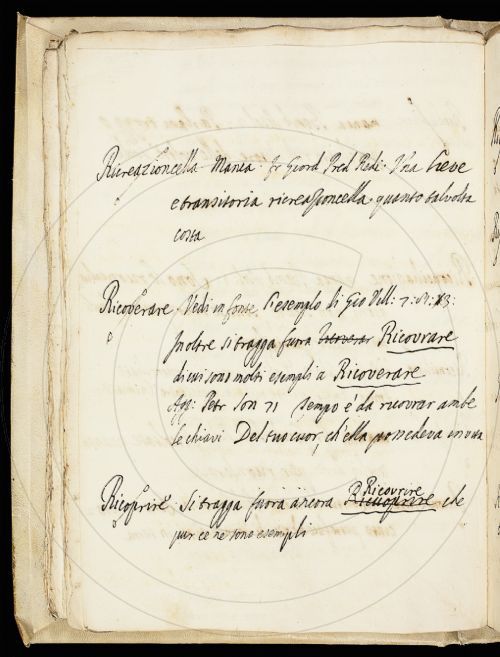 Ricreazioncella. Manca. Fr Giord Pred Redi. Una lieve
e transitoria ricreazioncella quanto talvolta
costa
Ricoverare. Vedi in fonte l'esemplo di Gio Vill: 7:
Inoltre si tragga fuora Ricovrare
di cui sono molti esempli a Ricoverare
Agg: Petr Son 71 tempo è da ricovrar ambe
le chiavi Del tuo cuor, ch'ella possedeva in vita
Ricoprire Si tragga fuora ancora Ricovrire che
pur ce ne sono esempli